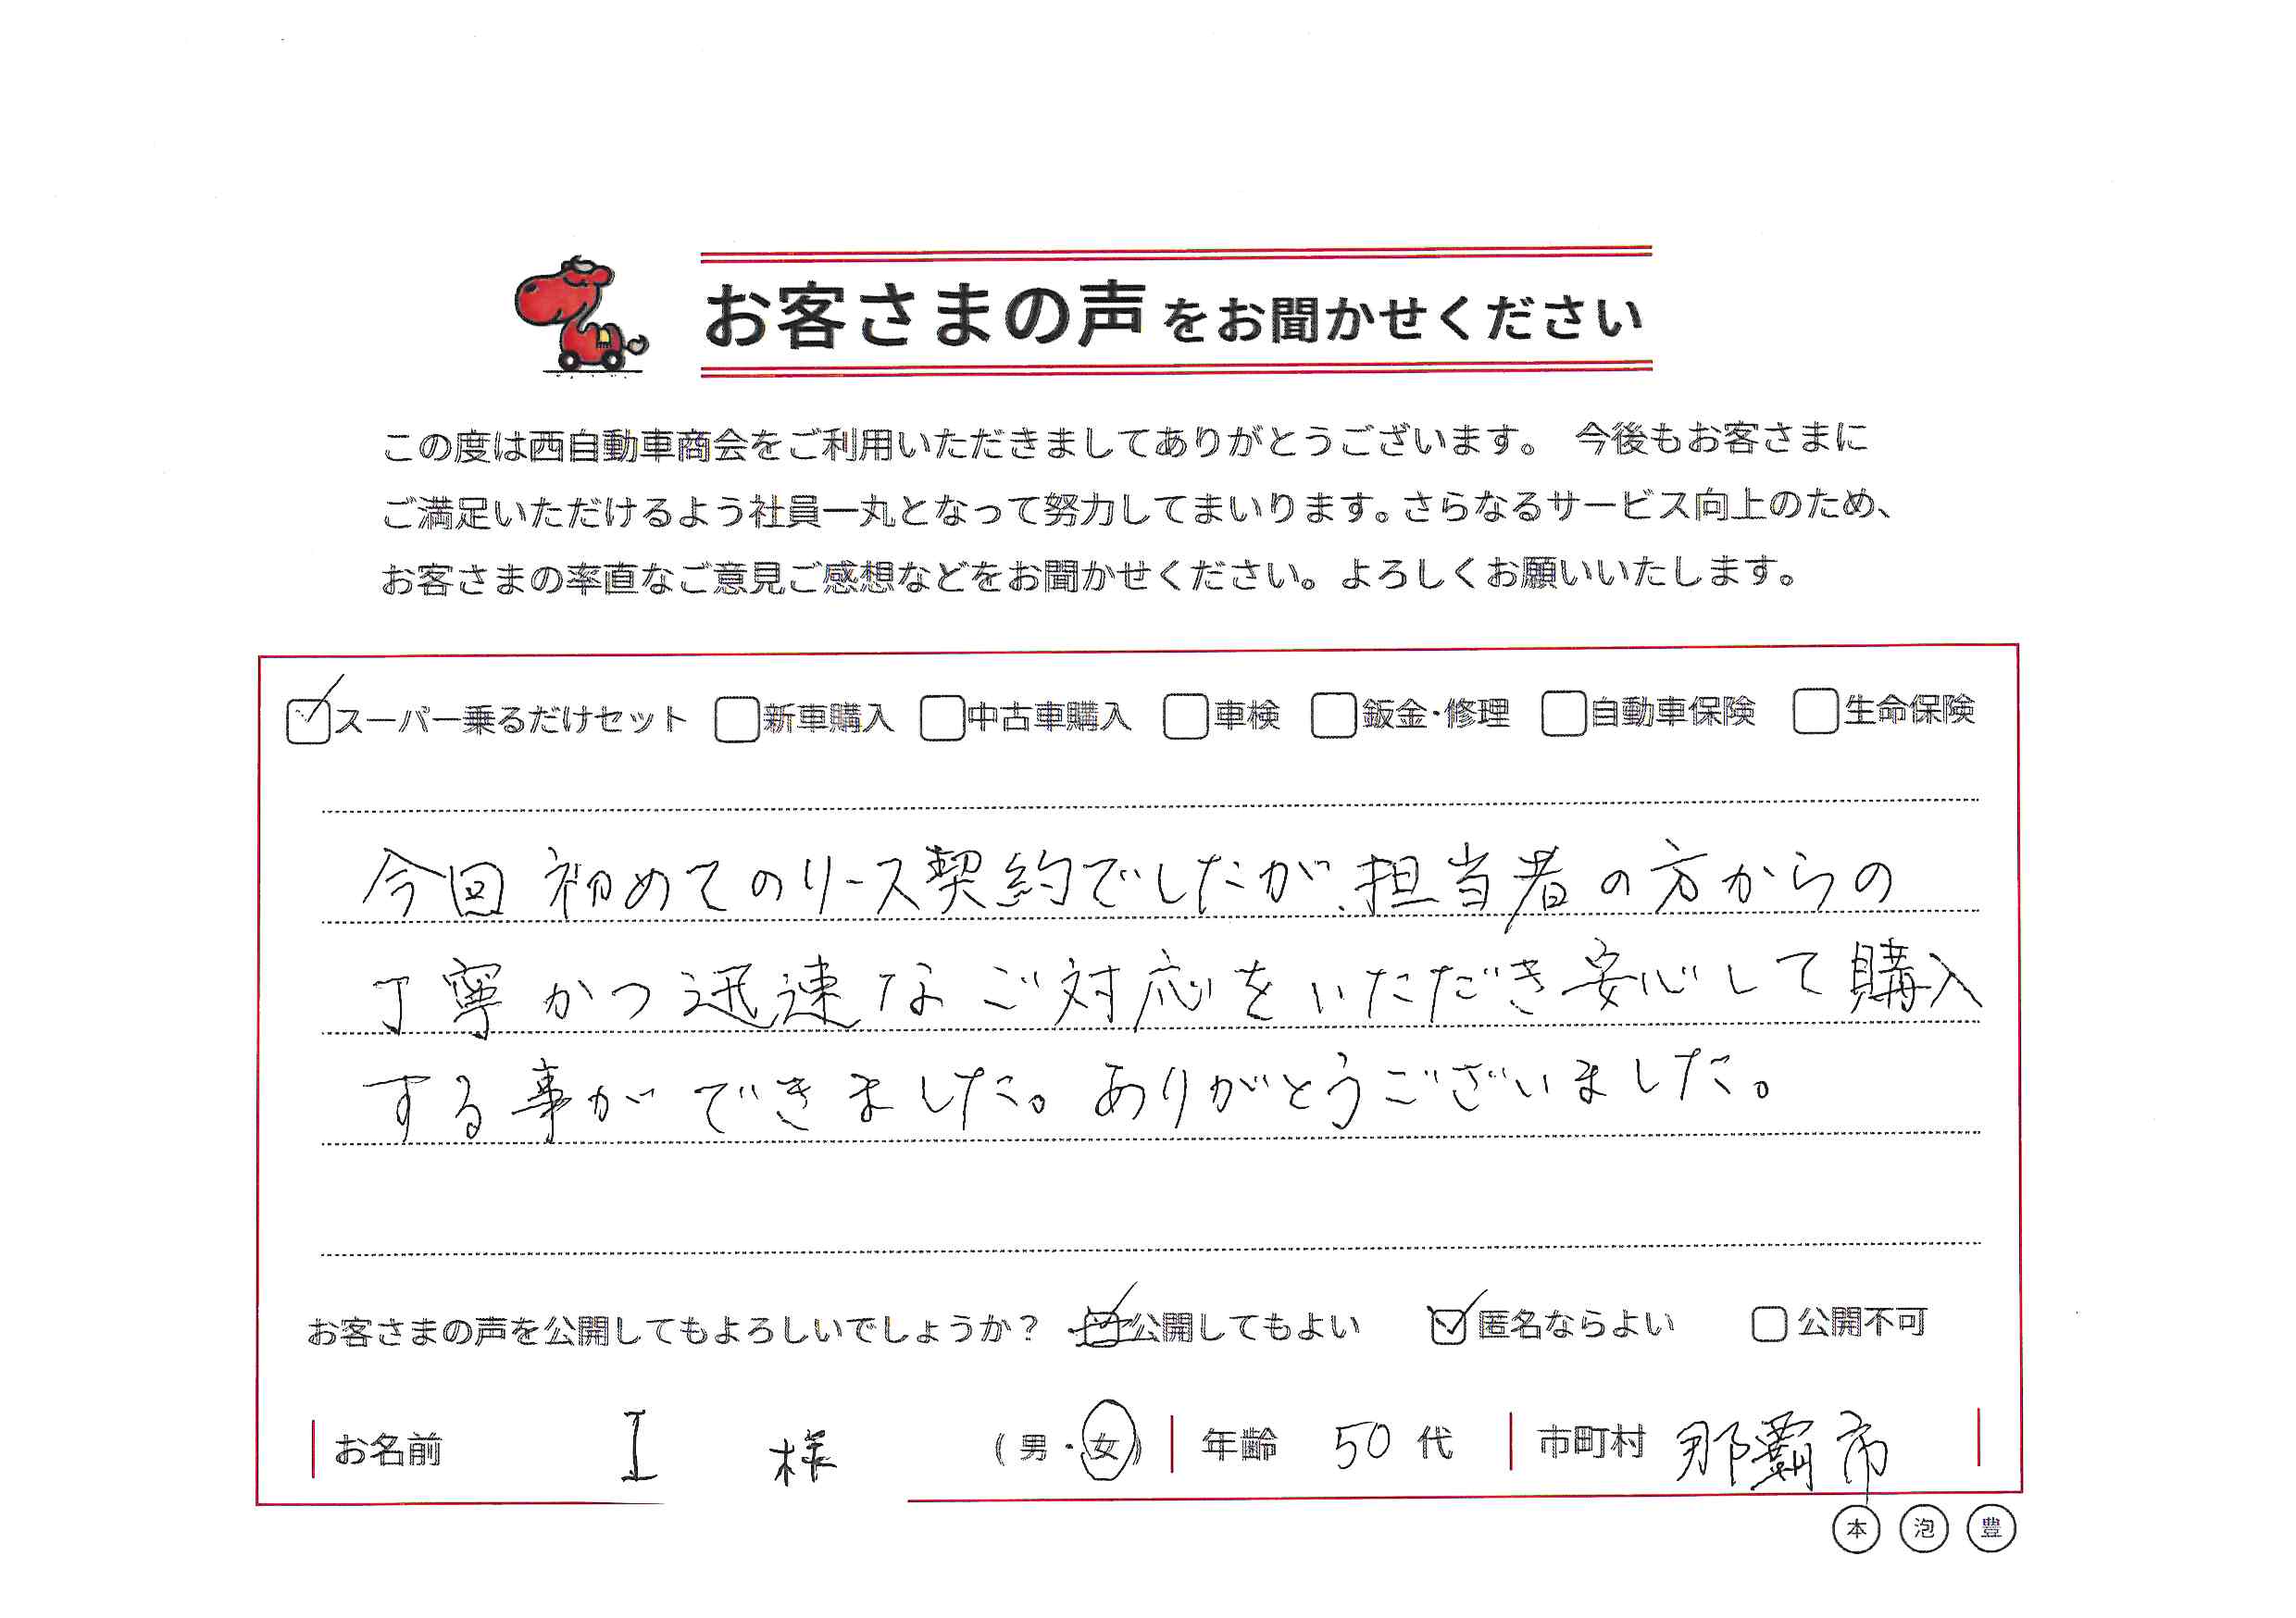 お客さまの声をお聞かせください
この度は西自動車商会をご利用いただきましてありがとうございます。 今後もお客さまに
ご満足いただけるよう社員一丸となって努力してまいります。さらなるサービス向上のため、
お客さまの率直なご意見ご感想などをお聞かせください。よろしくお願いいたします。
スーパー乗るだけセット 新車購入 中古車購入 車検 鈑金・修理 自動車保険 生命保険
今回初めてのリース契約でしたが、担当者の方からの
丁寧かつ迅速なご対応をいただき安心して購入
する事ができました。ありがとうございました。
お客さまの声を公開してもよろしいでしょうか? 公開してもよい 匿名ならよい 公開不可
お名前 I 様 (男・女) 年齢 50代 市町村 那覇市
本 泡 豊